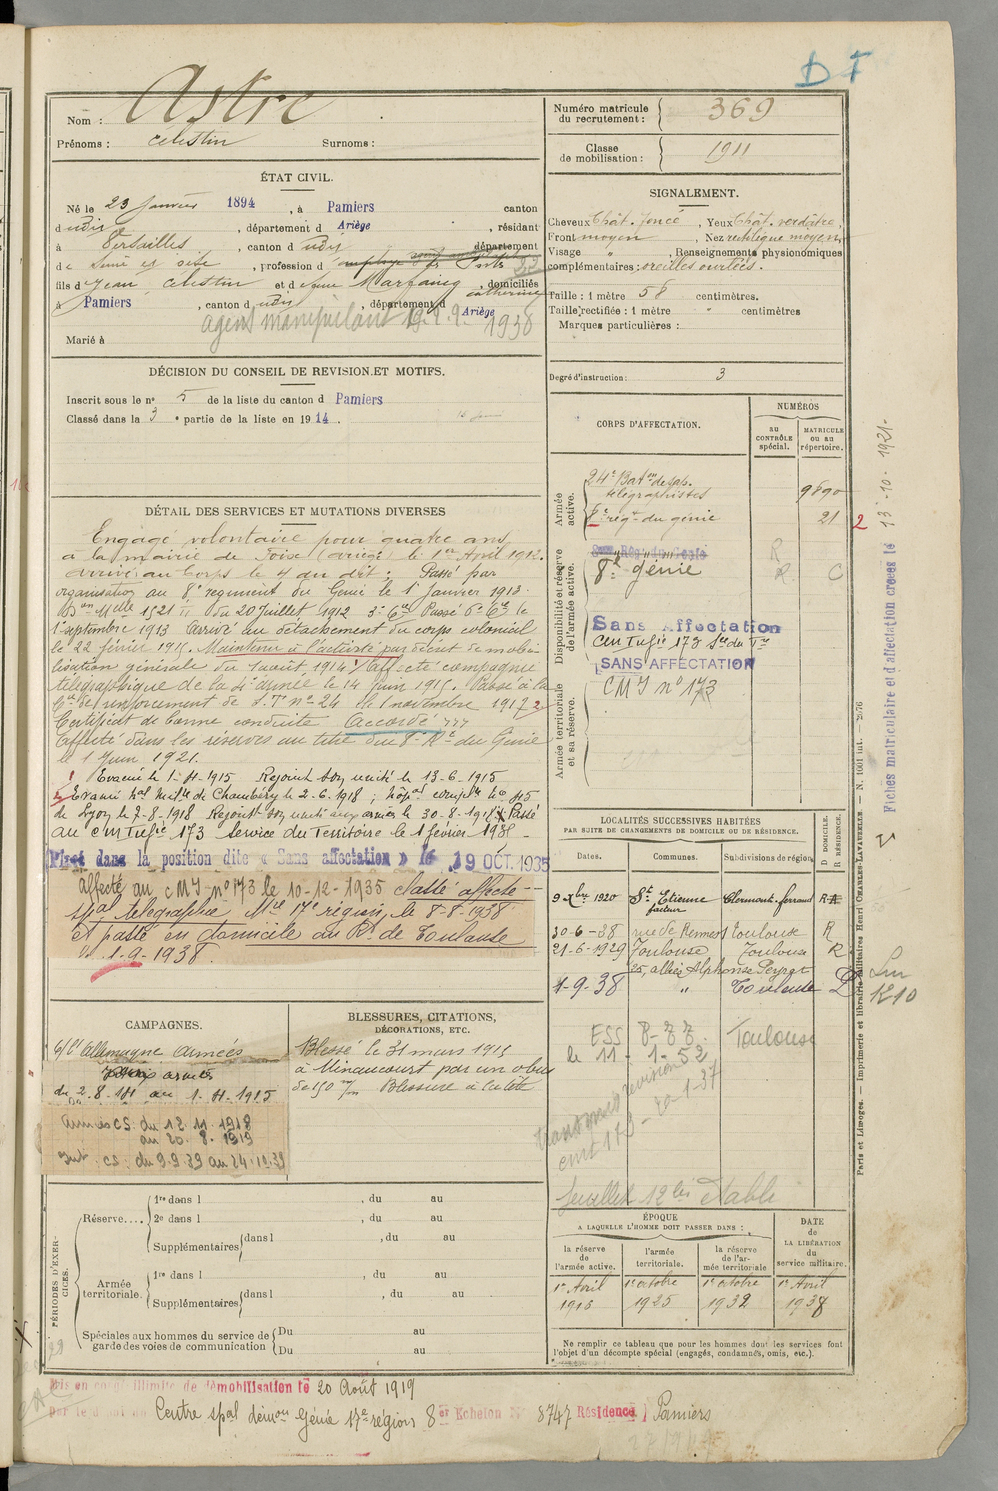 D T
Nom : Astre
Prénoms : Célestin Surnoms :
Numéro matricule du recrutement : 369
Classe de mobilisation : 1911
ÉTAT CIVIL.
Né le 23 Janvier 1894, à Pamiers canton
dudit, département d Ariège, résidant
à Versailles, canton d udit département
de Seine et Oise, profession d
fils d Jean Célestin et d efune Marfaing Catherine, domiciliés
à Pamiers, canton d udit, département d Ariège
agent manipulant 19.2.9. 1938
Marié à
SIGNALEMENT.
Cheveux Chât. foncé, Yeux Chât. verdâtre,
Front moyen, Nez rectiligne moyen
Visage " , Renseignements physionomiques
complémentaires : oreilles ourlées.
Taille : 1 mètre 58 centimètres.
Taille rectifiée : 1 mètre " centimètres
Marques particulières :
Degré d'instruction : 3
DÉCISION DU CONSEIL DE REVISION ET MOTIFS.
Inscrit sous le n° 5 de la liste du canton d Pamiers
Classé dans la 3 e partie de la liste en 1914.
CORPS D'AFFECTATION.
NUMÉROS
au CONTRÔLE spécial.
MATRICULE ou au répertoire.
Armée active.
24e Bat on de sap.
télégraphistes 9690
8e régt du génie 21
Disponibilité et réserve de l'armée active.
8e Génie R C
Sans Affectation
CM Tufié 173 Sce du Tre
SANS AFFECTATION
Armée territoriale et sa réserve.
CMI n° 173
DÉTAIL DES SERVICES ET MUTATIONS DIVERSES
Engagé volontaire pour quatre ans
à la mairie de Foix (Ariège) le 1er Avril 1912.
Arrivé au Corps le 4 du dit. Passé par
organisation au 8e régiment du Génie le 1 Janvier 1913.
Don Melle 1521 II du 20 Juillet 1912 3e Cie Passé 6e Cie le
1er septembre 1913 Arrivé au détachement du corps colonial
le 22 février 1915. Maintenu à l'activité par décret de mobi-
lisation générale du 1 août 1914. Affecté compagnie
télégraphique de la 4e armée le 14 Juin 1915. Passé à la
Cie de renforcement de S.T. n° 24 le 1 novembre 1917
Certificat de bonne conduite "Accordé"
Affecté dans les réserves au titre du 8e Rt du Génie
le 1 Juin 1921.
Evacué le 1-4-1915 Rejoint son unité le 13-6-1915
Evacué hal Mixte de Chambéry le 2-6-1918 ; hôpal compl re n° 45
de Lyon le 7-8-1918 Rejoint son unité aux armées le 30-8-1918 Passé
au CM Tufié 173 Service du Territoire le 1 février 1935
Placé dans la position dite « Sans affectation » le 19 OCT. 1935
affecté au CMI n° 173 le 10-12-1935 Classé affecté
spal télégraphie Mre 17e région, le 8-8-1938
Et passé en domicile au Rt de Toulouse
le 1-9-1938.
LOCALITÉS SUCCESSIVES HABITÉES
PAR SUITE DE CHANGEMENTS DE DOMICILE OU DE RÉSIDENCE.
Dates. Communes. Subdivisions de région. D DOMICILE. R RÉSIDENCE.
9 Xbre 1920 St Etienne facteur Clermont-ferrand R
30-6-38 rue de Rennes Toulouse R
21-6-1929 Toulouse Toulouse R
25, allées Alphonse Peyrat
1-9-38 " Toulouse D
ESS 8-77. Toulouse
le 11-1-52
transmis revision
cmt 173 - 20-1-37
feuillet 12 bis établi
CAMPAGNES.
c/ l'Allemagne Armées
du 2.8.14 au 1-4-1915
Armées CS : du 12.11.1918
au 20.8.1919
Int : CS : du 9.9.39 au 24.10.39
BLESSURES, CITATIONS,
DÉCORATIONS, ETC.
Blessé le 31 mars 1915
à Minaucourt par un obus
de 150 m/m Blessure à la tête
PÉRIODES D'EXERCICES.
Réserve.... 1re dans l , du au
2e dans l , du au
Supplémentaires dans l , du au
Armée territoriale. 1re dans l , du au
Supplémentaires dans l , du au
Spéciales aux hommes du service de garde des voies de communication Du au
Du au
ÉPOQUE
A LAQUELLE L'HOMME DOIT PASSER DANS :
la réserve de l'armée active. l'armée territoriale. la réserve de l'armée territoriale
DATE DE LA LIBÉRATION du service militaire.
1er Avril 1er octobre 1er octobre 1er Avril
1913 1925 1932 1938
Ne remplir ce tableau que pour les hommes dont les services font
l'objet d'un décompte spécial (engagés, condamnés, omis, etc.).
Mis en congé illimité de démobilisation le 20 Août 1919
par le dépôt du Centre spal démon Génie 17e région 8er Echelon N° 8747 Résidence Pamiers
Fiches matriculaire et d'affectation créées le 13-10-1921-
Paris et Limoges. — Imprimerie et librairie militaires Henri CHARLES-LAVAUZELLE. — N. 1001 int. — 2676